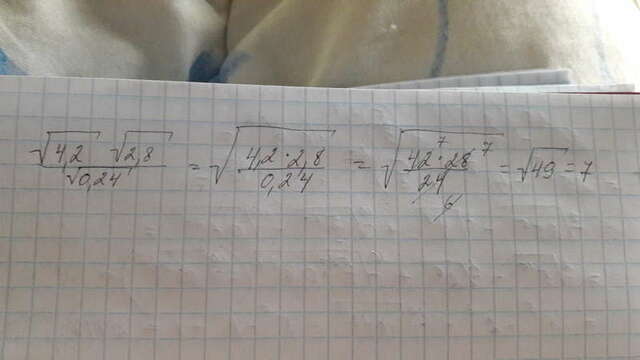 √4,2 √2,8 / √0,24 = √(4,2 · 2,8 / 0,24) = √(42 7 · 28 7 / 24 6) = √49 = 7